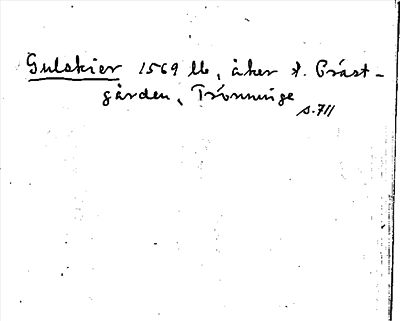 Gulskier 1569 lb, åker t. Präst-
gården, Trönninge
s. 711